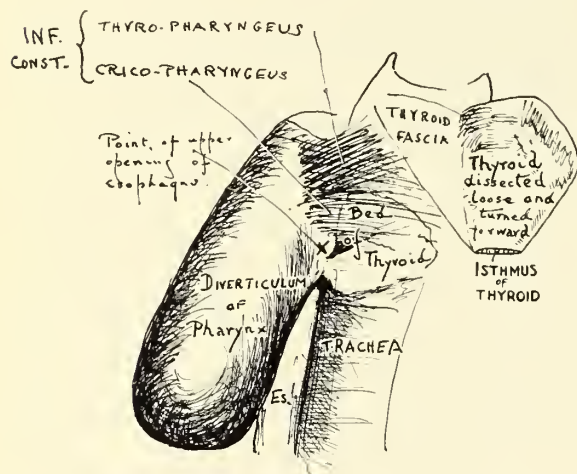 INF.
CONST.
THYRO-PHARYNGEUS
CRICO-PHARYNGEUS
Point of upper
opening of
esophagus.
THYROID
FASCIA
Thyroid
dissected
loose and
turned
forward
ISTHMUS
OF
THYROID
Bed
of
Thyroid
X
DIVERTICULUM
of
Pharynx
TRACHEA
Es.